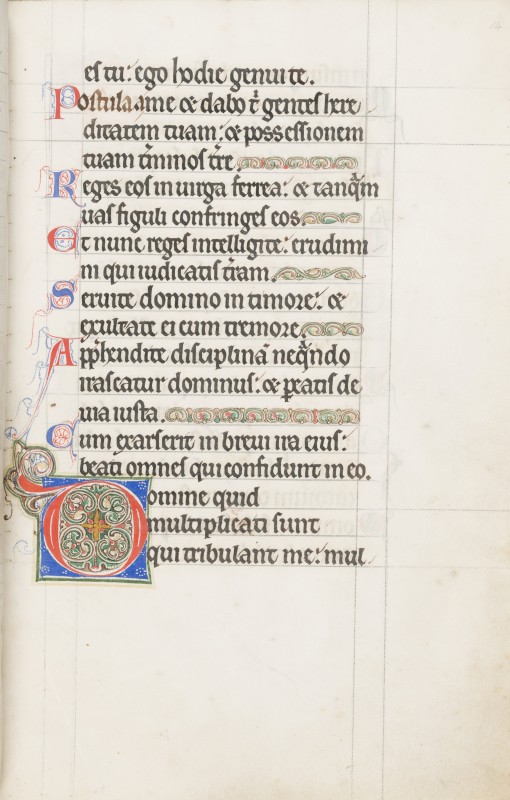 es tu: ego hodie genui te.
Postula a me & dabo t̄ gentes here
ditatem tuam: & possessionem
tuam t̄minos t̄re.
Reges eos in uirga ferrea: & tanq̄m
uas figuli confringes eos.
Et nunc reges intelligite: erudimi
ni qui iudicatis t̄ram.
Seruite domino in timore: &
exultate ei cum tremore.
App̄hendite disciplinā neq̄ndo
irascatur dominus: & peatis de
uia iusta.
Cum exarserit in breui ira eius:
beati omnes qui confidunt in eo.
Domine quid
multiplicati sunt
qui tribulant me: mul